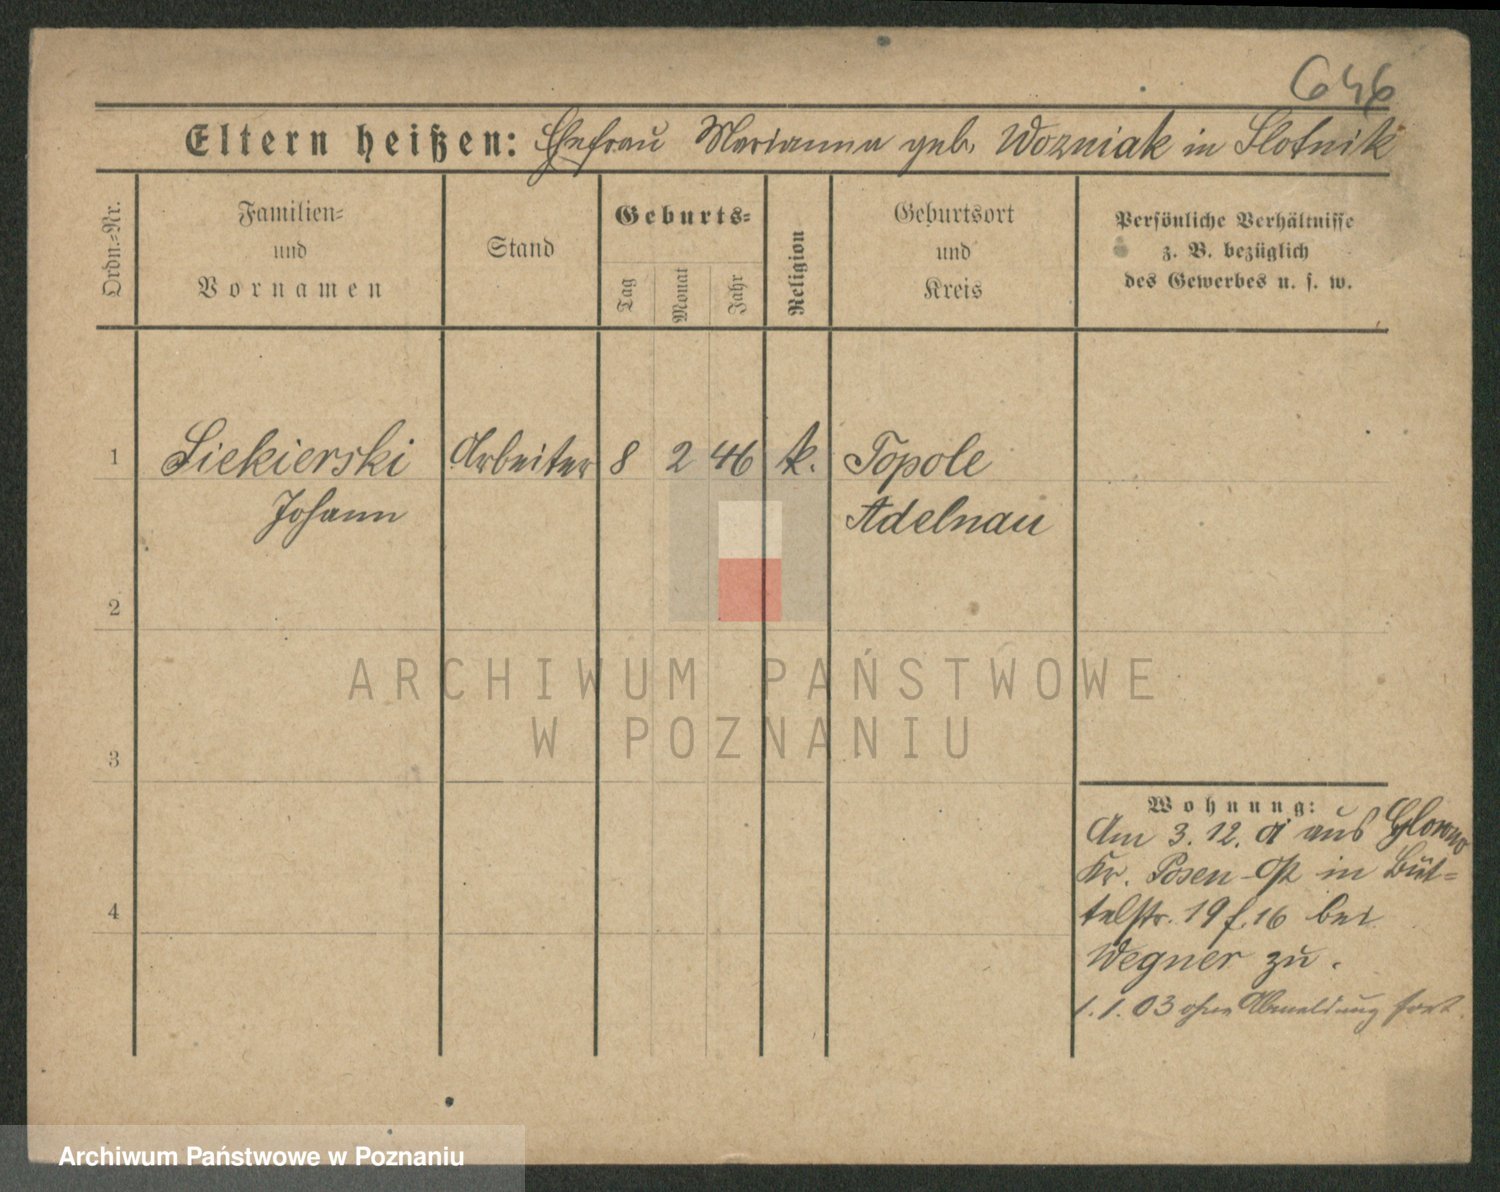 646
Eltern heißen: Ehefrau Marianna geb. Wozniak in Slotnik
Ordn.-Nr.
Familien-
und
Vornamen
Stand
Geburts-
Tag
Monat
Jahr
Religion
Geburtsort
und
Kreis
Persönliche Verhältnisse
z. B. bezüglich
des Gewerbes u. s. w.
1 Siekierski Arbeiter 8 2 46 k. Topole
Johann Adelnau
2
3
4
Wohnung:
Am 3. 12. aus Glowno
Kr. Posen-Ost in Büt-
telstr. 19 f. 16 bei
Wegner zu.
1. 1. 03 ohne Abmeldung fort.
ARCHIWUM PAŃSTWOWE
W POZNANIU
Archiwum Państwowe w Poznaniu